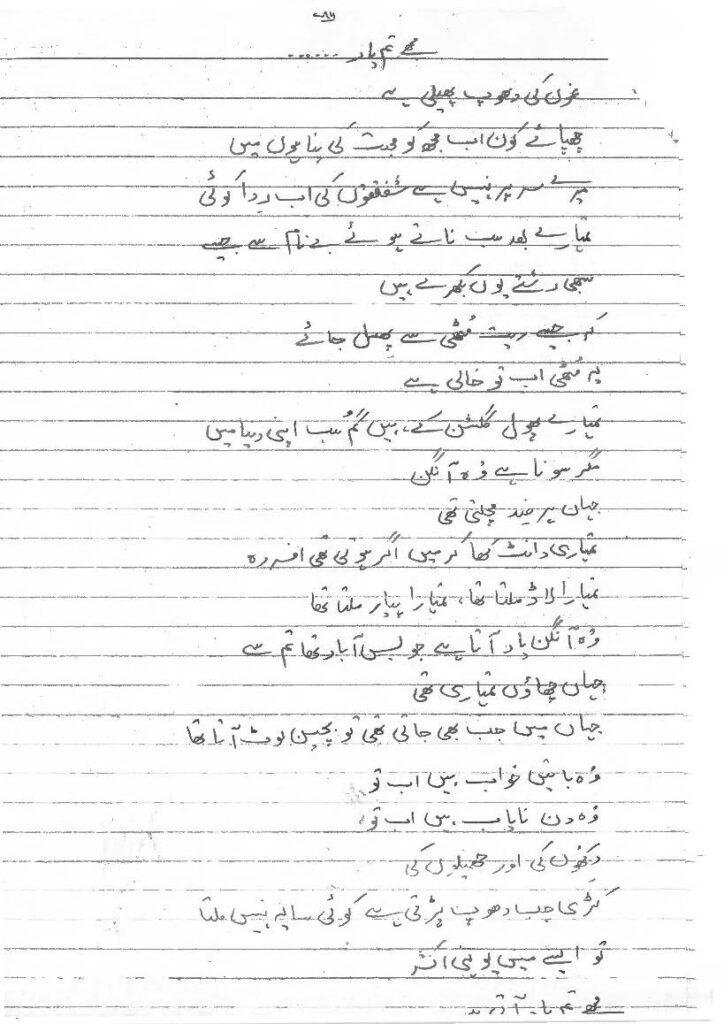 ۷۸۶
مجھے تم یاد ......
غموں کی دھوپ پھیلی ہے
چھپائے کون اب مجھ کو محبت کی پناہوں میں
میرے سر پر نہیں ہے شفقتوں کی اب ردا کوئی
تمہارے بعد سب ناتے ہوئے بے نام سے جیسے
سبھی رشتے یوں بکھرے ہیں
کہ جیسے ریت مُٹھی سے پھسل جائے
یہ مُٹھی اب تو خالی ہے
تمہارے پھول گلشن کے، ہیں گُم سب اپنی دنیا میں
مگر سونا ہے وُہ آنگن
جہاں پر ضِد مچلتی تھی
تمہاری ڈانٹ کھا کر میں اگر ہوتی تھی افسردہ
تمہارا لاڈ ملتا تھا، تمہارا پیار ملتا تھا
وُہ آنگن یاد آتا ہے جو بس آباد تھا تم سے
جہاں چھاؤں تمہاری تھی
جہاں میں جب بھی جاتی تھی تو بچپن لوٹ آتا تھا
وُہ باتیں خواب ہیں اب تو
وُہ دن نایاب ہیں اب تو
دکھوں کی اور جھمیلوں کی
کڑی جب دھوپ پڑتی ہے کوئی سایہ نہیں ملتا
تو ایسے میں یونہی اکثر
مجھے تم یاد آتی ہو